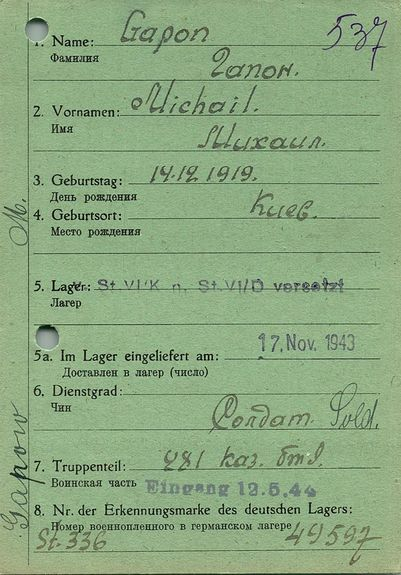 537
1. Name: Gapon
Фамилия
Гапон.
2. Vornamen: Michail.
Имя
Михаил.
3. Geburtstag: 14.12 1919.
День рождения
4. Geburtsort: Киев.
Место рождения
5. Lager: v. St. VI/K n. St. VI/D versetzt
Лагер
5a. Im Lager eingeliefert am: 17. Nov. 1943
Доставлен в лагер (число)
6. Dienstgrad:
Чин
Солдат. Sold.
7. Truppenteil: 281
Воинская часть Eingang 12.5.44
8. Nr. der Erkennungsmarke des deutschen Lagers:
Номер военнопленного в германском лагере
St. 336 49597
Gapow M.